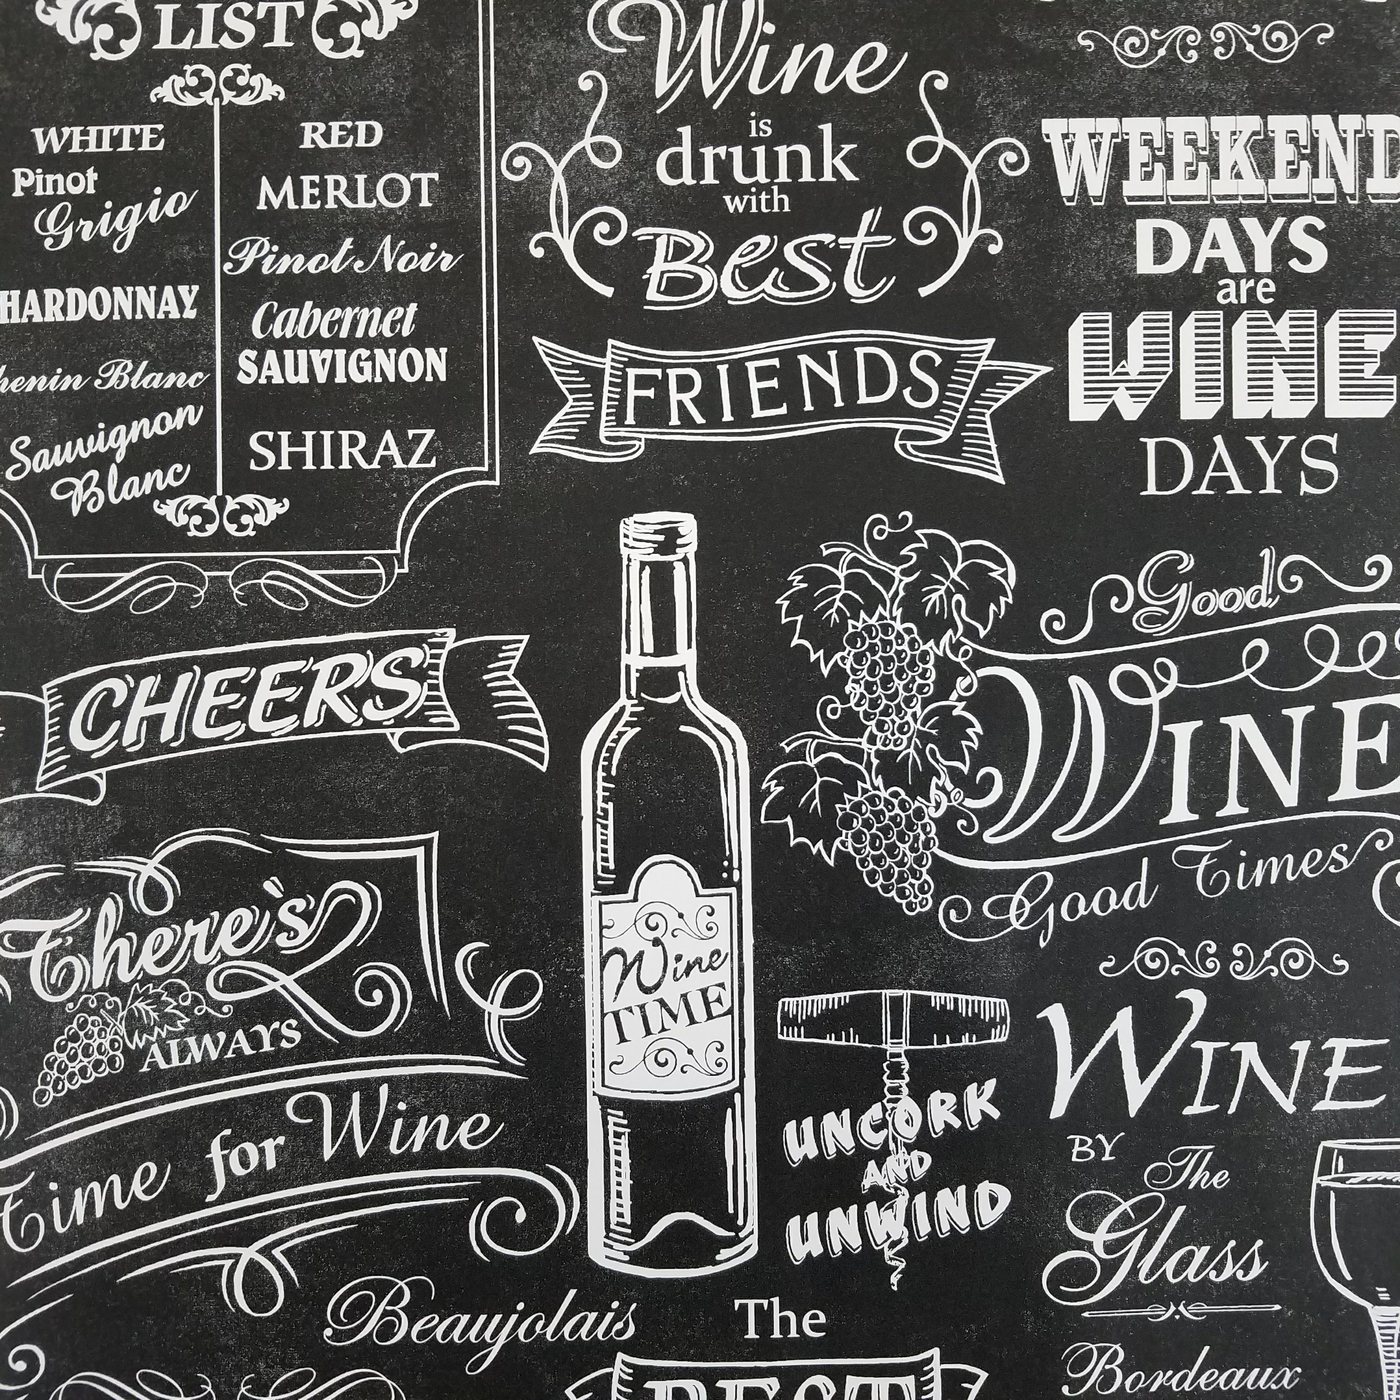 LIST
WHITE
Pinot
Grigio
HARDONNAY
henin Blanc
Sauvignon
Blanc
RED
MERLOT
Pinot Noir
Cabernet
SAUVIGNON
SHIRAZ
Wine
is
drunk
with
Best
FRIENDS
WEEKEND
DAYS
are
WINE
DAYS
CHEERS
Good
WINE
Good Times
There's
ALWAYS
Time for Wine
Wine
TIME
UNCORK
AND
UNWIND
WINE
BY
The
Glass
Beaujolais
The
BEST
Bordeaux